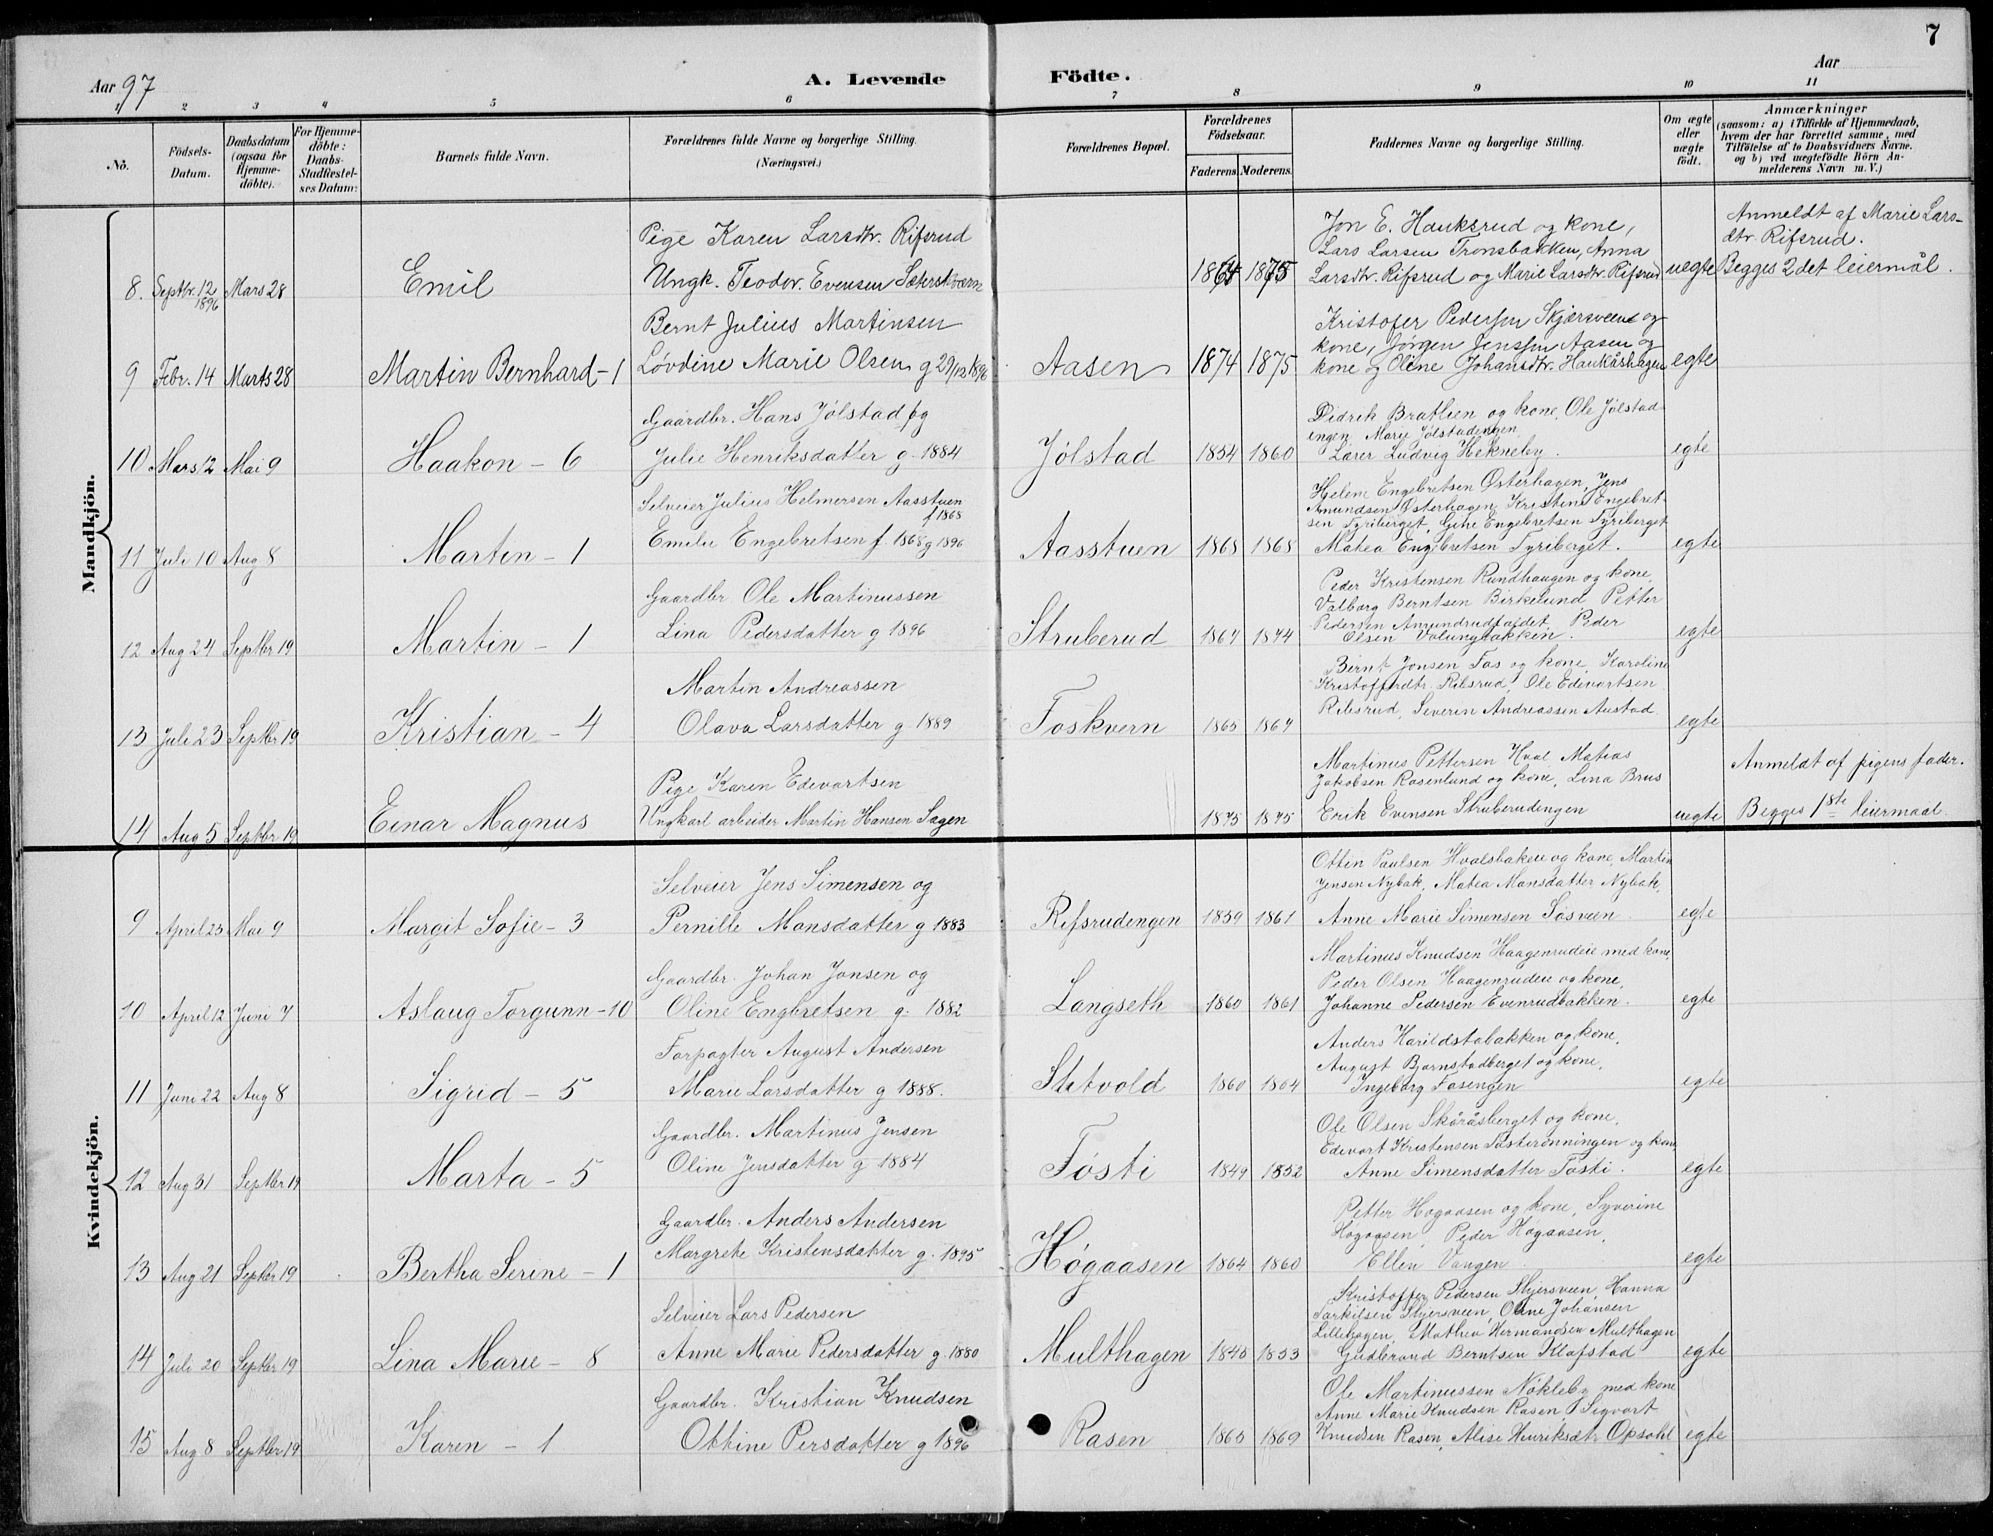 7
Aar 97
A. Levende Födte.
Aar
1 2 3 4 5 6 7 8 9 10 11
No.
Födsels-Datum.
Daabsdatum (ogsaa for Hjemme-döbte).
For Hjemme-döbte: Daabs-Stadfestel-ses Datum:
Barnets fulde Navn.
Forældrenes fulde Navne og borgerlige Stilling. (Næringsvei.)
Forældrenes Bopæl.
Forældrenes Födselsaar.
Faderens. Moderens.
Faddernes Navne og borgerlige Stilling.
Om ægte eller uægte födt.
Anmærkninger
(saasom: a) i Tilfælde af Hjemmedaab,
hvem der har forrettet samme, med
Tilföielse af to Daabsvidners Navne.
og b) ved uægtefödte Börn An-
melderens Navn m. V.)
Mandkjön.
Pige Karen Larsdtr. Rifsrud
Jon E. Hauksrud og kone,
Lars Larsen Tronsbakken, Anna
Anmeldt af Marie Lars-
dtr. Rifsrud.
8. Septbr. 12 1896 Mars 28 Emil Ungk. Teodor Evensen Sæterskværn 1864 1875 Larsdtr. Rifsrud og Marie Larsdtr. Rifsrud uegte Begges 2det leiermål.
Bernt Julius Martinsen
Kristofer Pedersen Skjærsveen og
kone, Jørgen Jenssen Aasen og
9 Febr. 14 Marts 28 Martin Bernhard - 1 Løvdine Marie Olsen g 29/12 1896 Aasen 1874 1875 kone og Oline Johansdtr. Haukåshagen egte
Gaardbr. Hans Jølstad og
Didrik Bratlien og kone, Ole Jølstad-
engen, Marie Jølstadengen
10 Mars 12 Mai 9 Haakon - 6 Julie Henriksdatter g. 1884 Jølstad 1854 1860 Lærer Ludvig Hekneby. egte
Selveier Julius Helmersen Aasstuen
f 1868
Helene Engebretsen Østerhagen, Jens
Amundsen Østerhagen, Kristine Engebret-
sen Tyriberget, Gine Engebretsen Tyriberget
11 Juli 10 Aug 8 Martin - 1 Emilie Engebretsen f. 1868 g 1896 Aasstuen 1868 1868 Matea Engebretsen Tyriberget. egte
Gaardbr Ole Martinussen
Peder Kristensen Rundhaugen og kone,
Valborg Berntsen Birkelund Petter
Pedersen Amundrudfaldet, Peder
12 Aug 24 Septbr 19 Martin - 1 Lina Pedersdatter g 1896 Struberud 1867 1874 Olsen Volungbakken. egte
Martin Andreassen
Bernt Jonsen Fos og kone, Karoline
Kristofferdtr. Ribsrud, Ole Edevartsen
13 Juli 23 Septbr 19 Kristian - 4 Olava Larsdatter g 1889 Foskvern 1865 1864 Ribsrud, Severin Andreassen Austad egte
Pige Karen Edevartsen
Martinus Pettersen Hval Matias
Jakobsen Rosenlund og kone, Lina Brus
Anmeldt af pigens fader.
14 Aug 5 Septbr 19 Einar Magnus Ungkarl arbeider Martin Hansen Sagen 1875 1875 Erik Evensen Struberudengen uegte Begges 1ste leiermaal.
Kvindekjön.
Selveier Jens Simensen og
Ottin Paulsen Hvalsbakken og kone, Martin
Jensen Nybak, Matea Monsdatter Nybak,
9 April 23 Mai 9 Margit Sofie - 3 Pernille Monsdatter g 1883 Rifsrudengen 1859 1861 Anne Marie Simensen Søsveen. egte
Gaardbr. Johan Jonsen og
Martinus Knudsen Haagenrudeie med kone,
Peder Olsen Haagenrudeie og kone,
10 April 12 Juni 7 Aslaug Torgunn - 10 Oline Engbretsen g. 1882 Langseth 1860 1861 Johanne Pedersen Evenrudbakken. egte
Forpagter August Andersen
Anders Harildstabakken og kone,
August Bjørnstadberget og kone,
11 Juni 22 Aug 8 Sigrid - 5 Marie Larsdatter g 1888. Slatvold 1860 1864 Ingeborg Fosengen egte
Gaardbr. Martinus Jensen
Ole Olsen Skåråsberget og kone,
Edevort Kristensen Søsterønningen og kone
12 Aug 31 Septbr 19 Marta - 5 Oline Jensdatter g 1884 Føsti 1849 1852 Anne Simensdatter Føsti. egte
Gaardbr. Anders Andersen
Petter Hogaasen og kone, Syverine
Høgaasen, Peder Høgaasen,
13 Aug 21 Septbr 19 Bertha Serine - 1 Margrete Kristensdatter g. 1895 Høgaasen 1864 1860 Ellen Vangen. egte
Selveier Lars Pedersen
Kristoffer Pedersen Skjersveen, Hanna
Tarkilsen Skjersveen, Oline Johansen
Lillehagen, Mathea Hermandsen Multhagen
14 Juli 20 Septbr 19 Lina Marie - 8 Anne Marie Pedersdatter g. 1880 Multhagen 1845 1853 Gudbrand Berntsen Klafstad egte
Gaardbr. Kristian Knudsen
Ole Martinussen Nökleby med kone
Anne Marie Knudsen Rasen, Sigvart
15 Aug 8 Septbr 19 Karen - 1 Ottine Persdatter g 1896 Rasen 1865 1869 Knudsen Rasen, Alise Henriksdtr. Opsahl egte